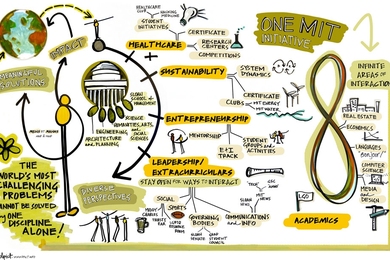 ONE MIT
INITIATIVE
HEALTHCARE
CUP
HACKING
MEDICINE
STUDENT
INITIATIVES
CERTIFICATE
RESEARCH
CENTERS
COMPETITIONS
IMPACT
MEANINGFUL
SOLUTIONS
SUSTAINABILITY
SYSTEM
DYNAMICS
CERTIFICATE
CLUBS
MIT ENERGY
MIT WATER
SLOAN
SCHOOL of
MANAGEMENT
SCIENCE
HUMANITIES, ARTS,
and SOCIAL
SCIENCES
ENGINEERING
ARCHITECTURE
and PLANNING
ENTREPRENEURSHIP
MENTORSHIP
STUDENT
GROUPS and
ACTIVITIES
E+I
TRACK
LEADERSHIP/
EXTRACURRICULARS
STAY OPEN FOR WAYS TO INTERACT
SOCIAL
SPORTS
GOVERNING
BODIES
SLOAN
SENATE
GRAD
STUDENT
COUNCIL
COMMUNICATIONS
and INFO
TECH
SLOAN
NEWS
MIT
NEWS
DIVERSE
PERSPECTIVES
THE
WORLD'S MOST
CHALLENGING
PROBLEMS
CANNOT BE SOLVED
by ONE
DISCIPLINE
ALONE!
INFINITE
AREAS OF
INTERACTION
REAL ESTATE
ECONOMICS
LANGUAGES
"BONJOUR!"
COMPUTER
SCIENCE
MEDIA
and
DESIGN
LGO
ACADEMICS